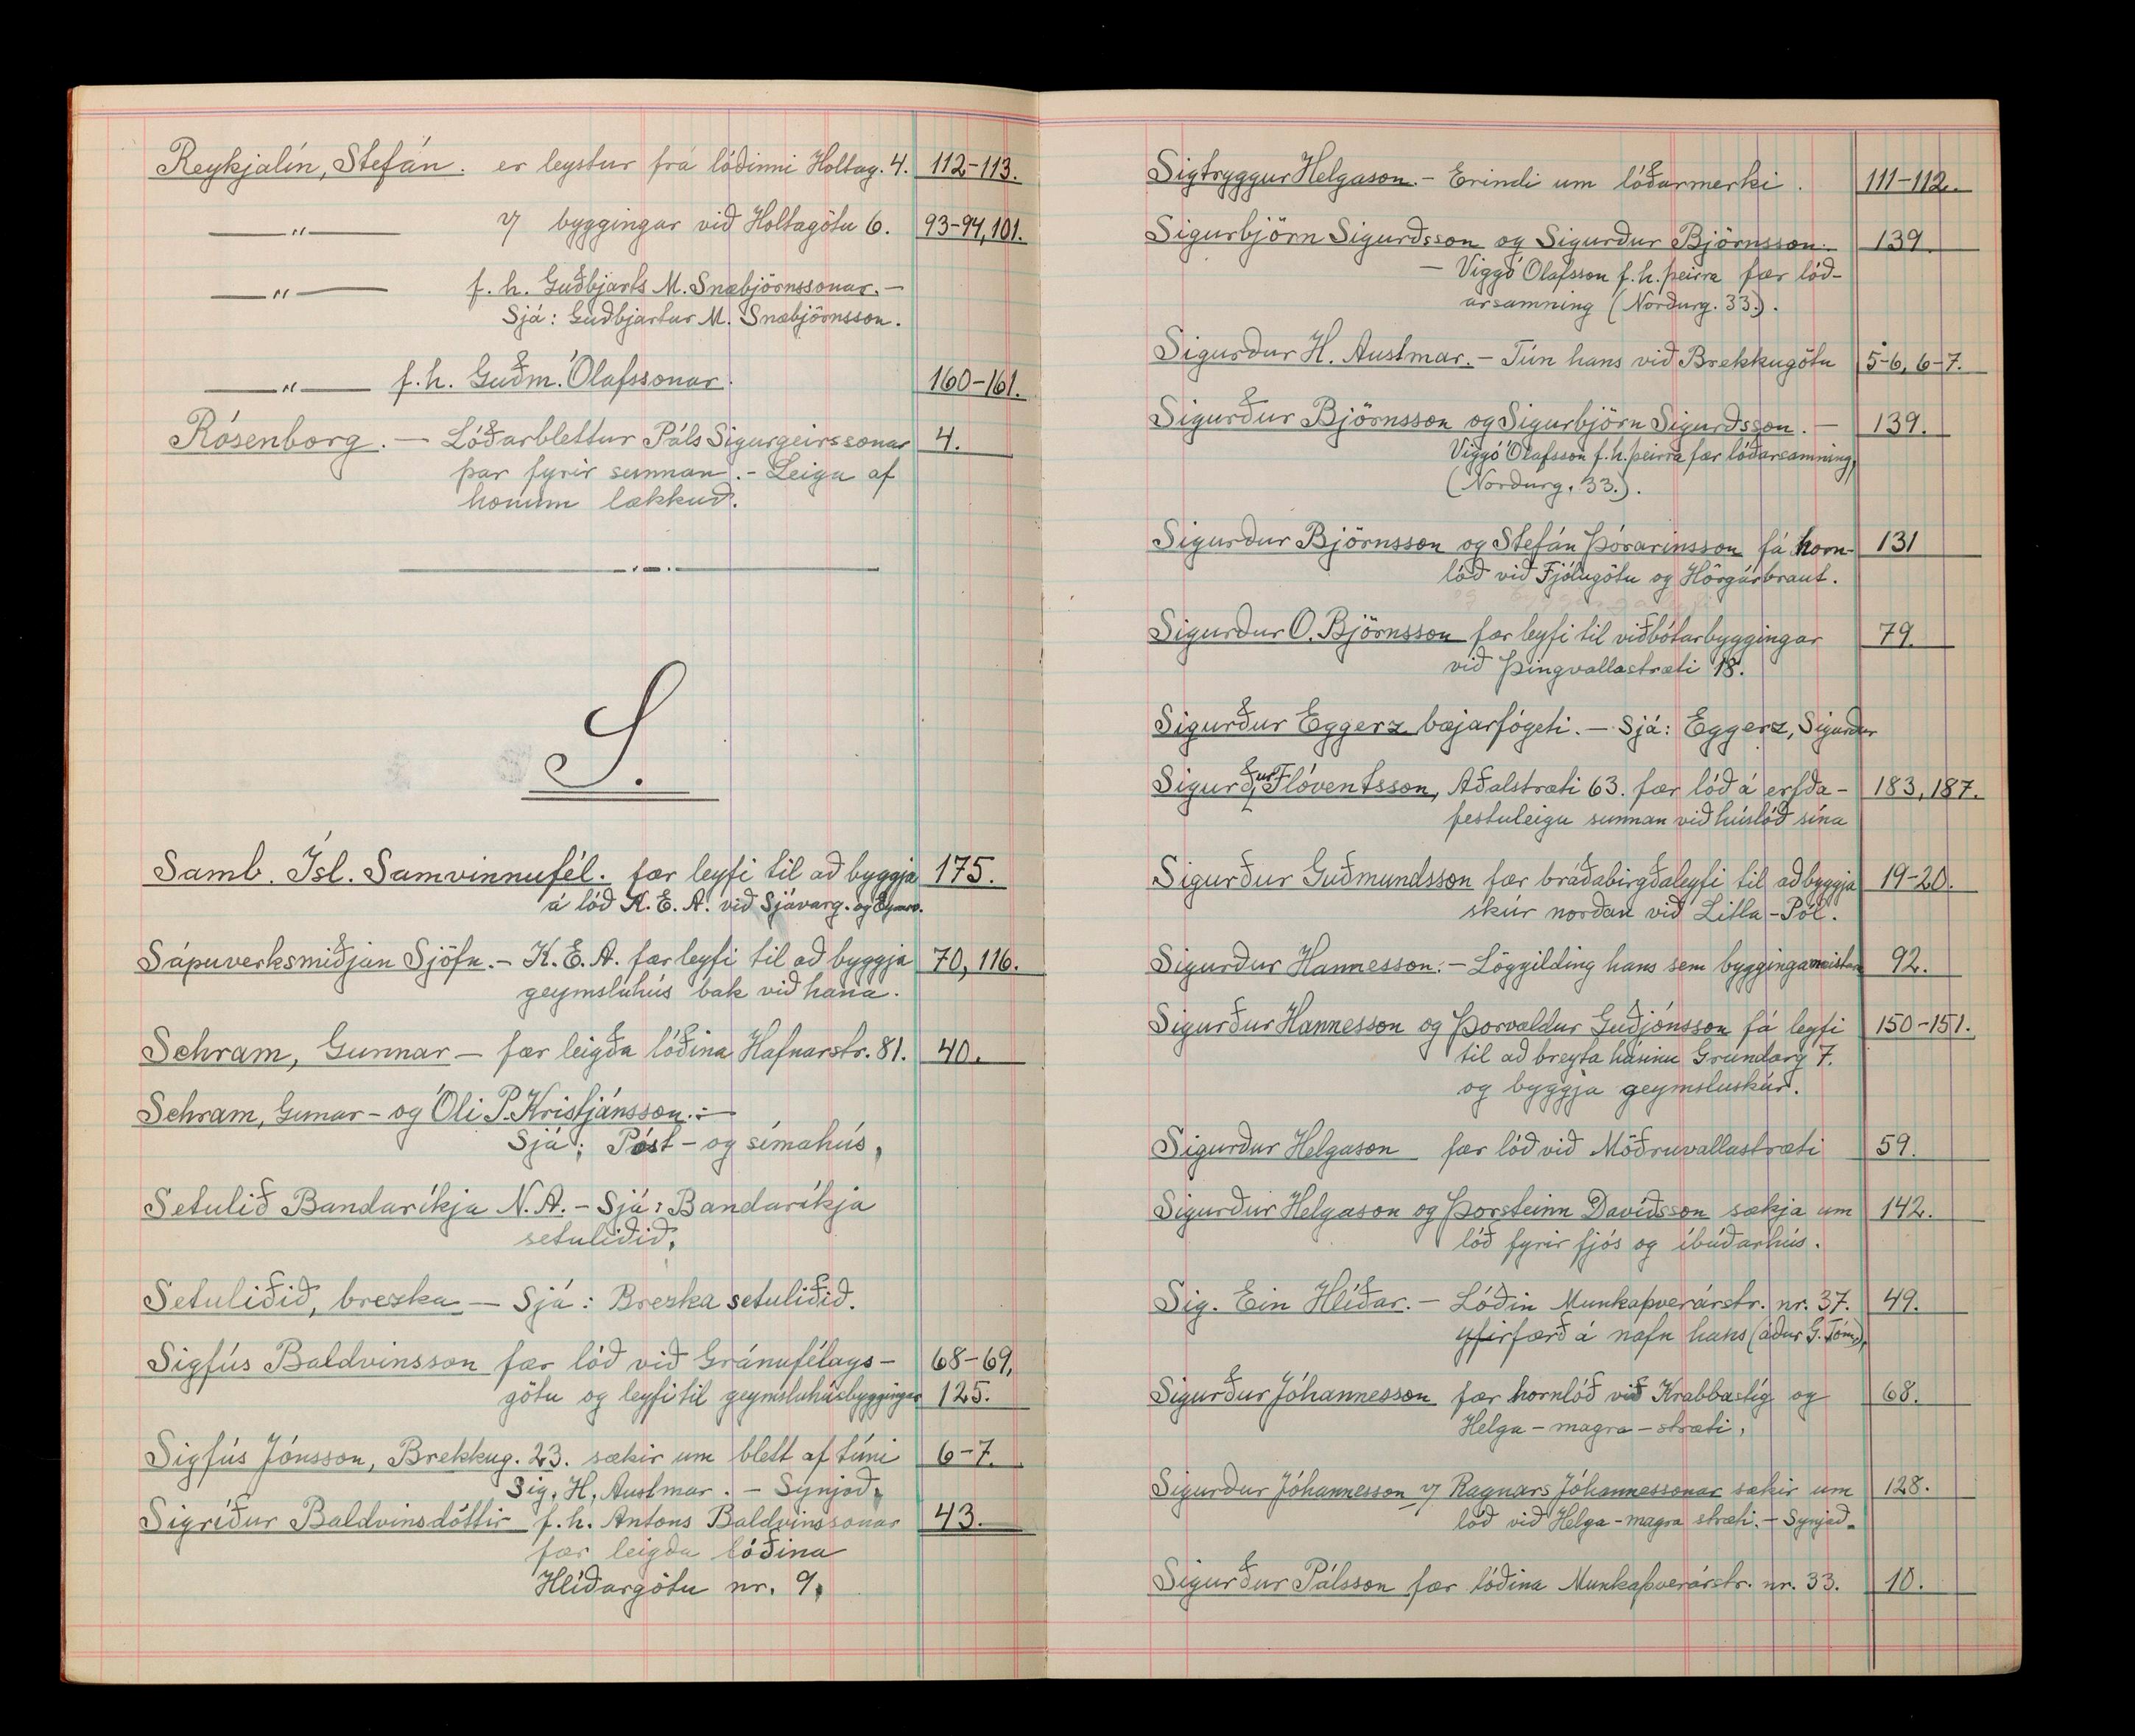 Reykjalín, Stefán. er leystur frá lóðinni Holtag. 4. 112-113.
—"— byggingar við Holtagötu 6. 93-94, 101.
—"— f. h. Guðbjarts M. Snæbjörnssonar. —
Sjá: Guðbjartur M. Snæbjörnsson.
—"— f. h. Guðm. Ólafssonar. 160-161.
Rósenborg. — Lóðarblettur Páls Sigurgeirssonar 4.
þar fyrir sunnan. - Leiga af
honum lækkuð.
S.
Samb. Ísl. Samvinnufél. fær leyfi til að byggja 175.
á lóð K. E. A. við Sjávarg. og
Sápuverksmiðjan Sjöfn. - K. E. A. fær leyfi til að byggja 70, 116.
geymsluhús bak við hana.
Schram, Gunnar — fær leigða lóðina Hafnarstr. 81. 40.
Schram, Gunnar - og Óli P. Kristjánsson. -
Sjá: Póst - og símahús.
Setulið Bandaríkja N. A. - Sjá: Bandaríkja
setuliðið.
Setuliðið, brezka — Sjá: Brezka setuliðið.
Sigfús Baldvinsson fær lóð við Gránufélags- 68-69,
götu og leyfi til geymsluhúsbyggingar 125.
Sigfús Jónsson, Brekkug. 23. sækir um blett af túni 6-7.
Sig. H. Austmar. - Synjað.
Sigríður Baldvinsdóttir f. h. Antons Baldvinssonar 43.
fær leigða lóðina
Hlíðargötu nr. 9.
Sigtryggur Helgason. - Erindi um lóðarmerki. 111-112.
Sigurbjörn Sigurðsson og Sigurður Björnsson. 139.
- Viggó Ólafsson f. h. þeirra fær lóð-
arsamning (Norðurg. 33.).
Sigurður H. Austmar. - Tún hans við Brekkugötu 5-6, 6-7.
Sigurður Björnsson og Sigurbjörn Sigurðsson. - 139.
Viggó Ólafsson f. h. þeirra fær lóðarsamning,
(Norðurg. 33.).
Sigurður Björnsson og Stefán Þórarinsson fá horn- 131
lóð við Fjólugötu og Hörgárbraut.
Sigurður O. Björnsson fær leyfi til viðbótarbyggingar 79.
við Þingvallastræti 18.
Sigurður Eggerz bæjarfógeti. - Sjá: Eggerz, Sigurður
Sigurður Flóventsson, Aðalstræti 63. fær lóð á erfða- 183, 187.
festuleigu sunnan við húslóð sína
Sigurður Guðmundsson fær bráðabirgðaleyfi til að byggja 19-20.
skúr norðan við Litla-Pól.
Sigurður Hannesson: - Löggilding hans sem byggingameistara 92.
Sigurður Hannesson og Þorvaldur Guðjónsson fá leyfi 150-151.
til að breyta húsinu Grundarg 7.
og byggja geymsluskúr.
Sigurður Helgason fær lóð við Möðruvallastræti 59.
Sigurður Helgason og Þorsteinn Davíðsson sækja um 142.
lóð fyrir fjós og íbúðarhús.
Sig. Ein Hlíðar. - Lóðin Munkaþverárstr. nr. 37. 49.
yfirfærð á nafn hans (áður G. Tóm.).
Sigurður Jóhannesson fær hornlóð við Krabbastíg og 68.
Helga - magra - stræti.
Sigurður Jóhannesson Ragnars Jóhannessonar sækir um 128.
lóð við Helga - magra stræti. - Synjað.
Sigurður Pálsson fær lóðina Munkaþverárstr. nr. 33. 10.